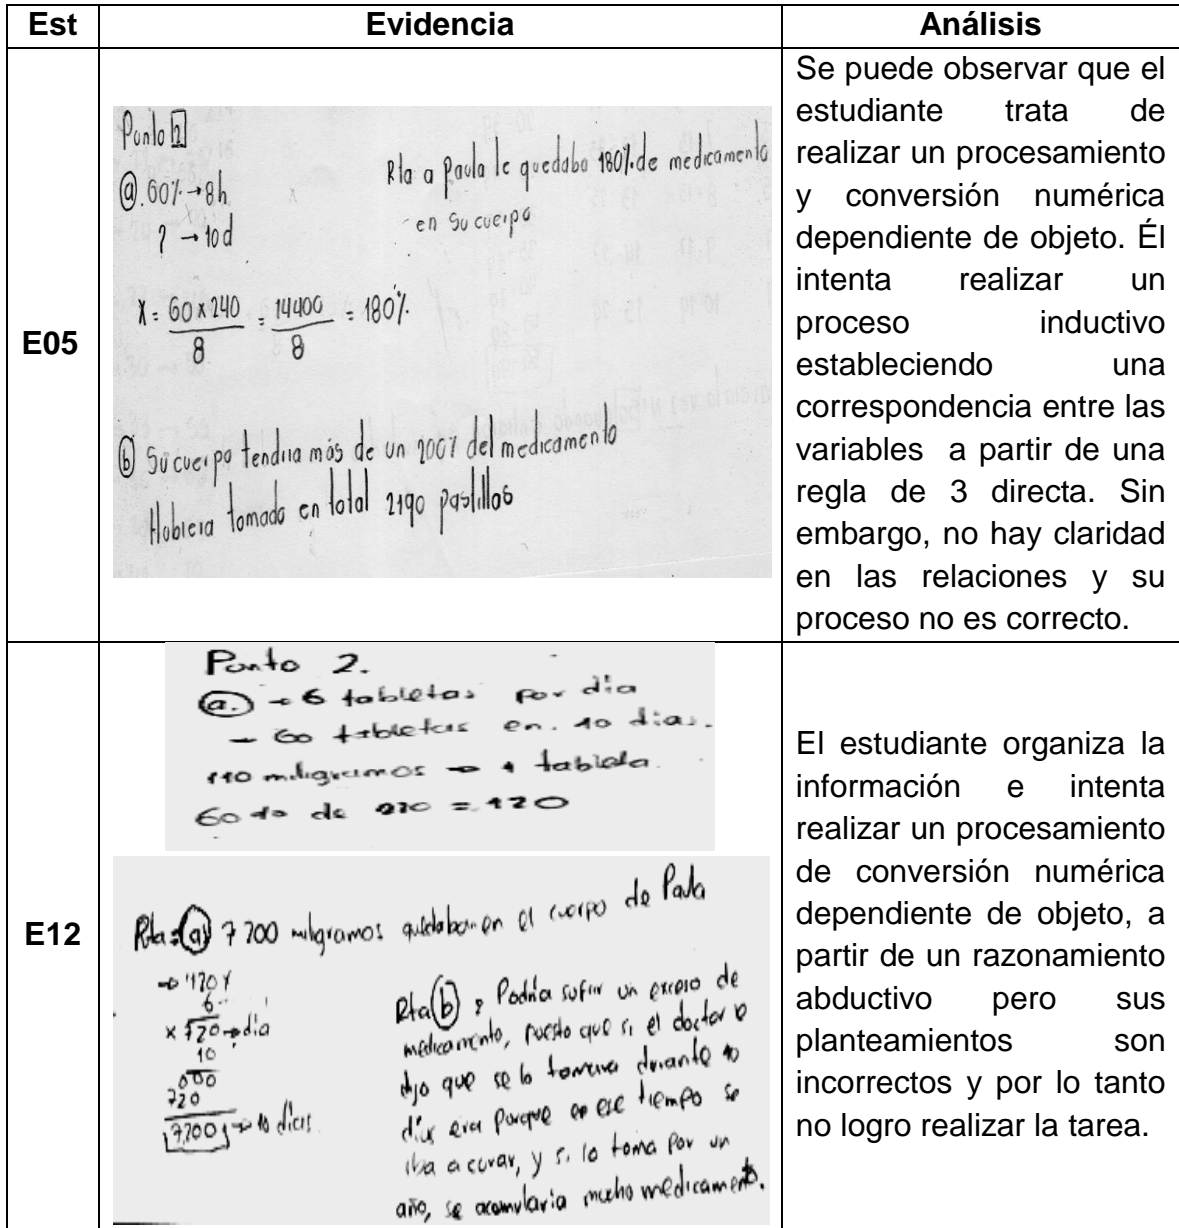 Est Evidencia Análisis
E05
Punto 2
a 60% → 8h
? → 10d
X = 60 x 240 = 14400 = 180%
8 8
Rta a Paula le quedaba 180% de medicamento
en su cuerpo
b Su cuerpo tendria más de un 200% del medicamento
Hubiera tomado en total 2190 pastillas
Se puede observar que el
estudiante trata de
realizar un procesamiento
y conversión numérica
dependiente de objeto. Él
intenta realizar un
proceso inductivo
estableciendo una
correspondencia entre las
variables a partir de una
regla de 3 directa. Sin
embargo, no hay claridad
en las relaciones y su
proceso no es correcto.
E12
Punto 2.
a. → 6 tabletas por dia
→ 60 tabletas en 10 dias.
110 miligramos → 1 tableta
60 % de = 120
Rta: a) 7 200 miligramos quedaban en el cuerpo de Paula
→ 120
6
x 720 → dia
10
000
720
7200 → 10 dias
Rta b) Podria sufrir un exceso de
medicamento, puesto que si el doctor le
dijo que se lo tomara durante 10
dias era porque en ese tiempo se
iba a curar, y si lo toma por un
año, se acomularia mucho medicamento.
El estudiante organiza la
información e intenta
realizar un procesamiento
de conversión numérica
dependiente de objeto, a
partir de un razonamiento
abductivo pero sus
planteamientos son
incorrectos y por lo tanto
no logro realizar la tarea.